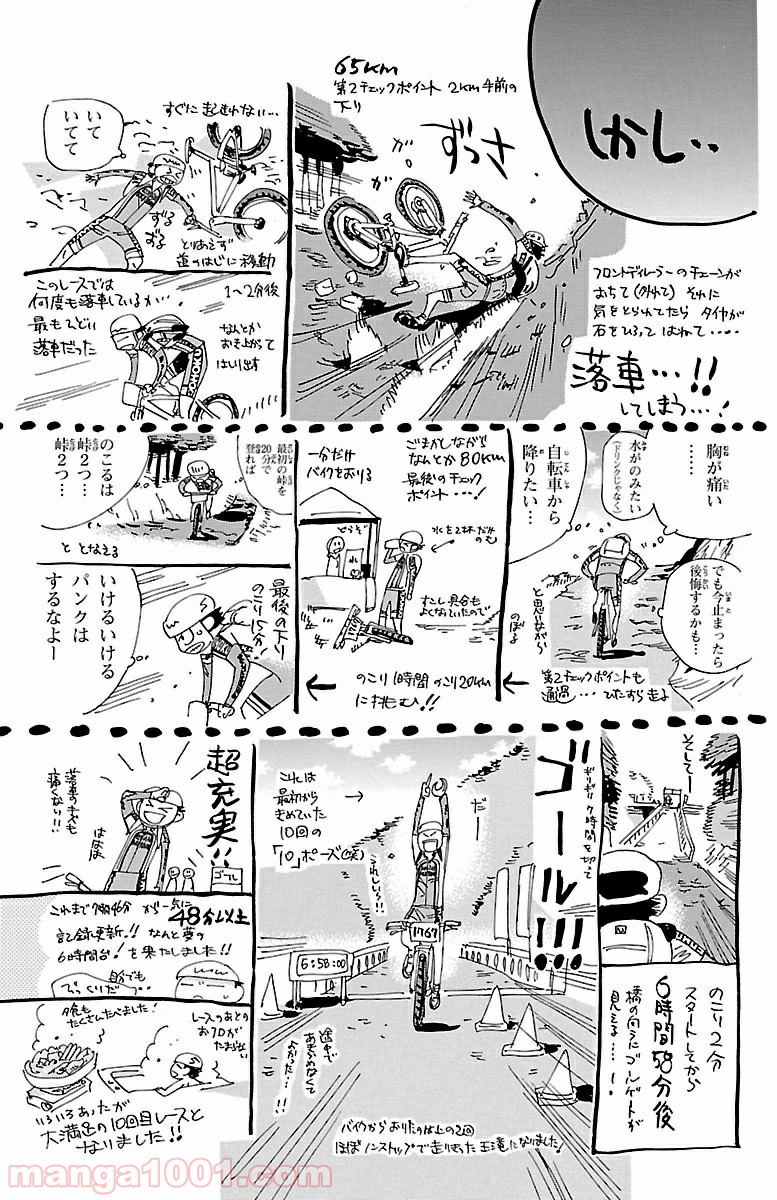 しかし‥
65km
第2チェックポイント 2km手前の
下り
ずっさ
ガ
ガ
フロントディレーラーのチェーンが
おちて(外れて) それに
気をとられてたら タイヤが
石をひろって はねて・・・・
落車…!!
してしまう…!
すぐに起きれない…
いて
いてて
ずる
ずる
とりあえず
道のはじに移動
このレースでは
何度も落車しているが…
最もひどい
落車だった
1〜2分後
なんとか
おき上がって
はしり出す
胸が痛い
……
水がのみたい
(ドリンクじゃなく)
自転車から
降りたい…
でも今止まったら
後悔するかも…
と思いながら
のぼる
第2チェックポイントも
通過… ひたすら走る
ごまかしながら!!
なんとか80km
最後のチェック
ポイント・・・!
一分だけ
バイクをおりる
どうぞ
水を2杯だけ
のむ
だし具合も
よくなっていたので
のこり1時間 のこり20km
に挑む!!
最初の峠を
20分で
登れば
のこるは
峠2つ…
峠2つ…
と となえる
最後の下り
のこり15分!
いけるいける
パンクは
するなよー
そしてー
のこり2分
スタートしてから
6時間58分後
橋の向うにゴールゲートが
見える……!
ギリギリ7時間を切って
ゴール!!!
だー
うれしいっ!!
これは
最初から
きめていた
10回の
「10」ポーズ(笑)
1767
6:58:00
途中で
あきらめなくて
よかった…!!
バイクからおりたのは上の2回
ほぼノンストップで走りきった王滝になりました!
超充実!!
落車のキズも
痛くない!!
ははは
ゴール
これまで7時間46分が一気に
48分以上
記録更新!! なんと夢の
6時間台!を果たしました!!
自分でも
びっくりだっ‥
レースのあとの
お風呂が
たまらない
夕食も
たくさんたべました!
いろいろあったが
大満足の10回目レースと
なりました!!
manga1001.com